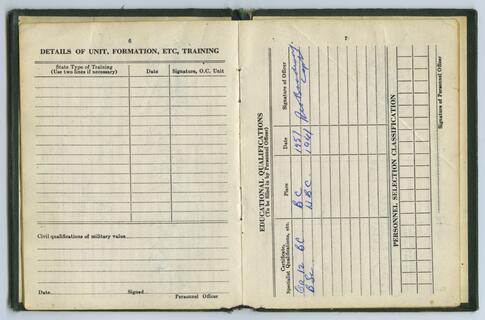 6
DETAILS OF UNIT, FORMATION, ETC, TRAINING
State Type of Training
(Use two lines if necessary)
Date
Signature, O.C. Unit
Civil qualifications of military value
Date
Signed
Personnel Officer
7
EDUCATIONAL QUALIFICATIONS
(To be filled in by Personnel Officer)
Certificate,
Specialist Qualifications, etc.
Place
Date
Signature of Officer
BC
BC
1951
BSc
1941
Capt
PERSONNEL SELECTION CLASSIFICATION
Signature of Personnel Officer